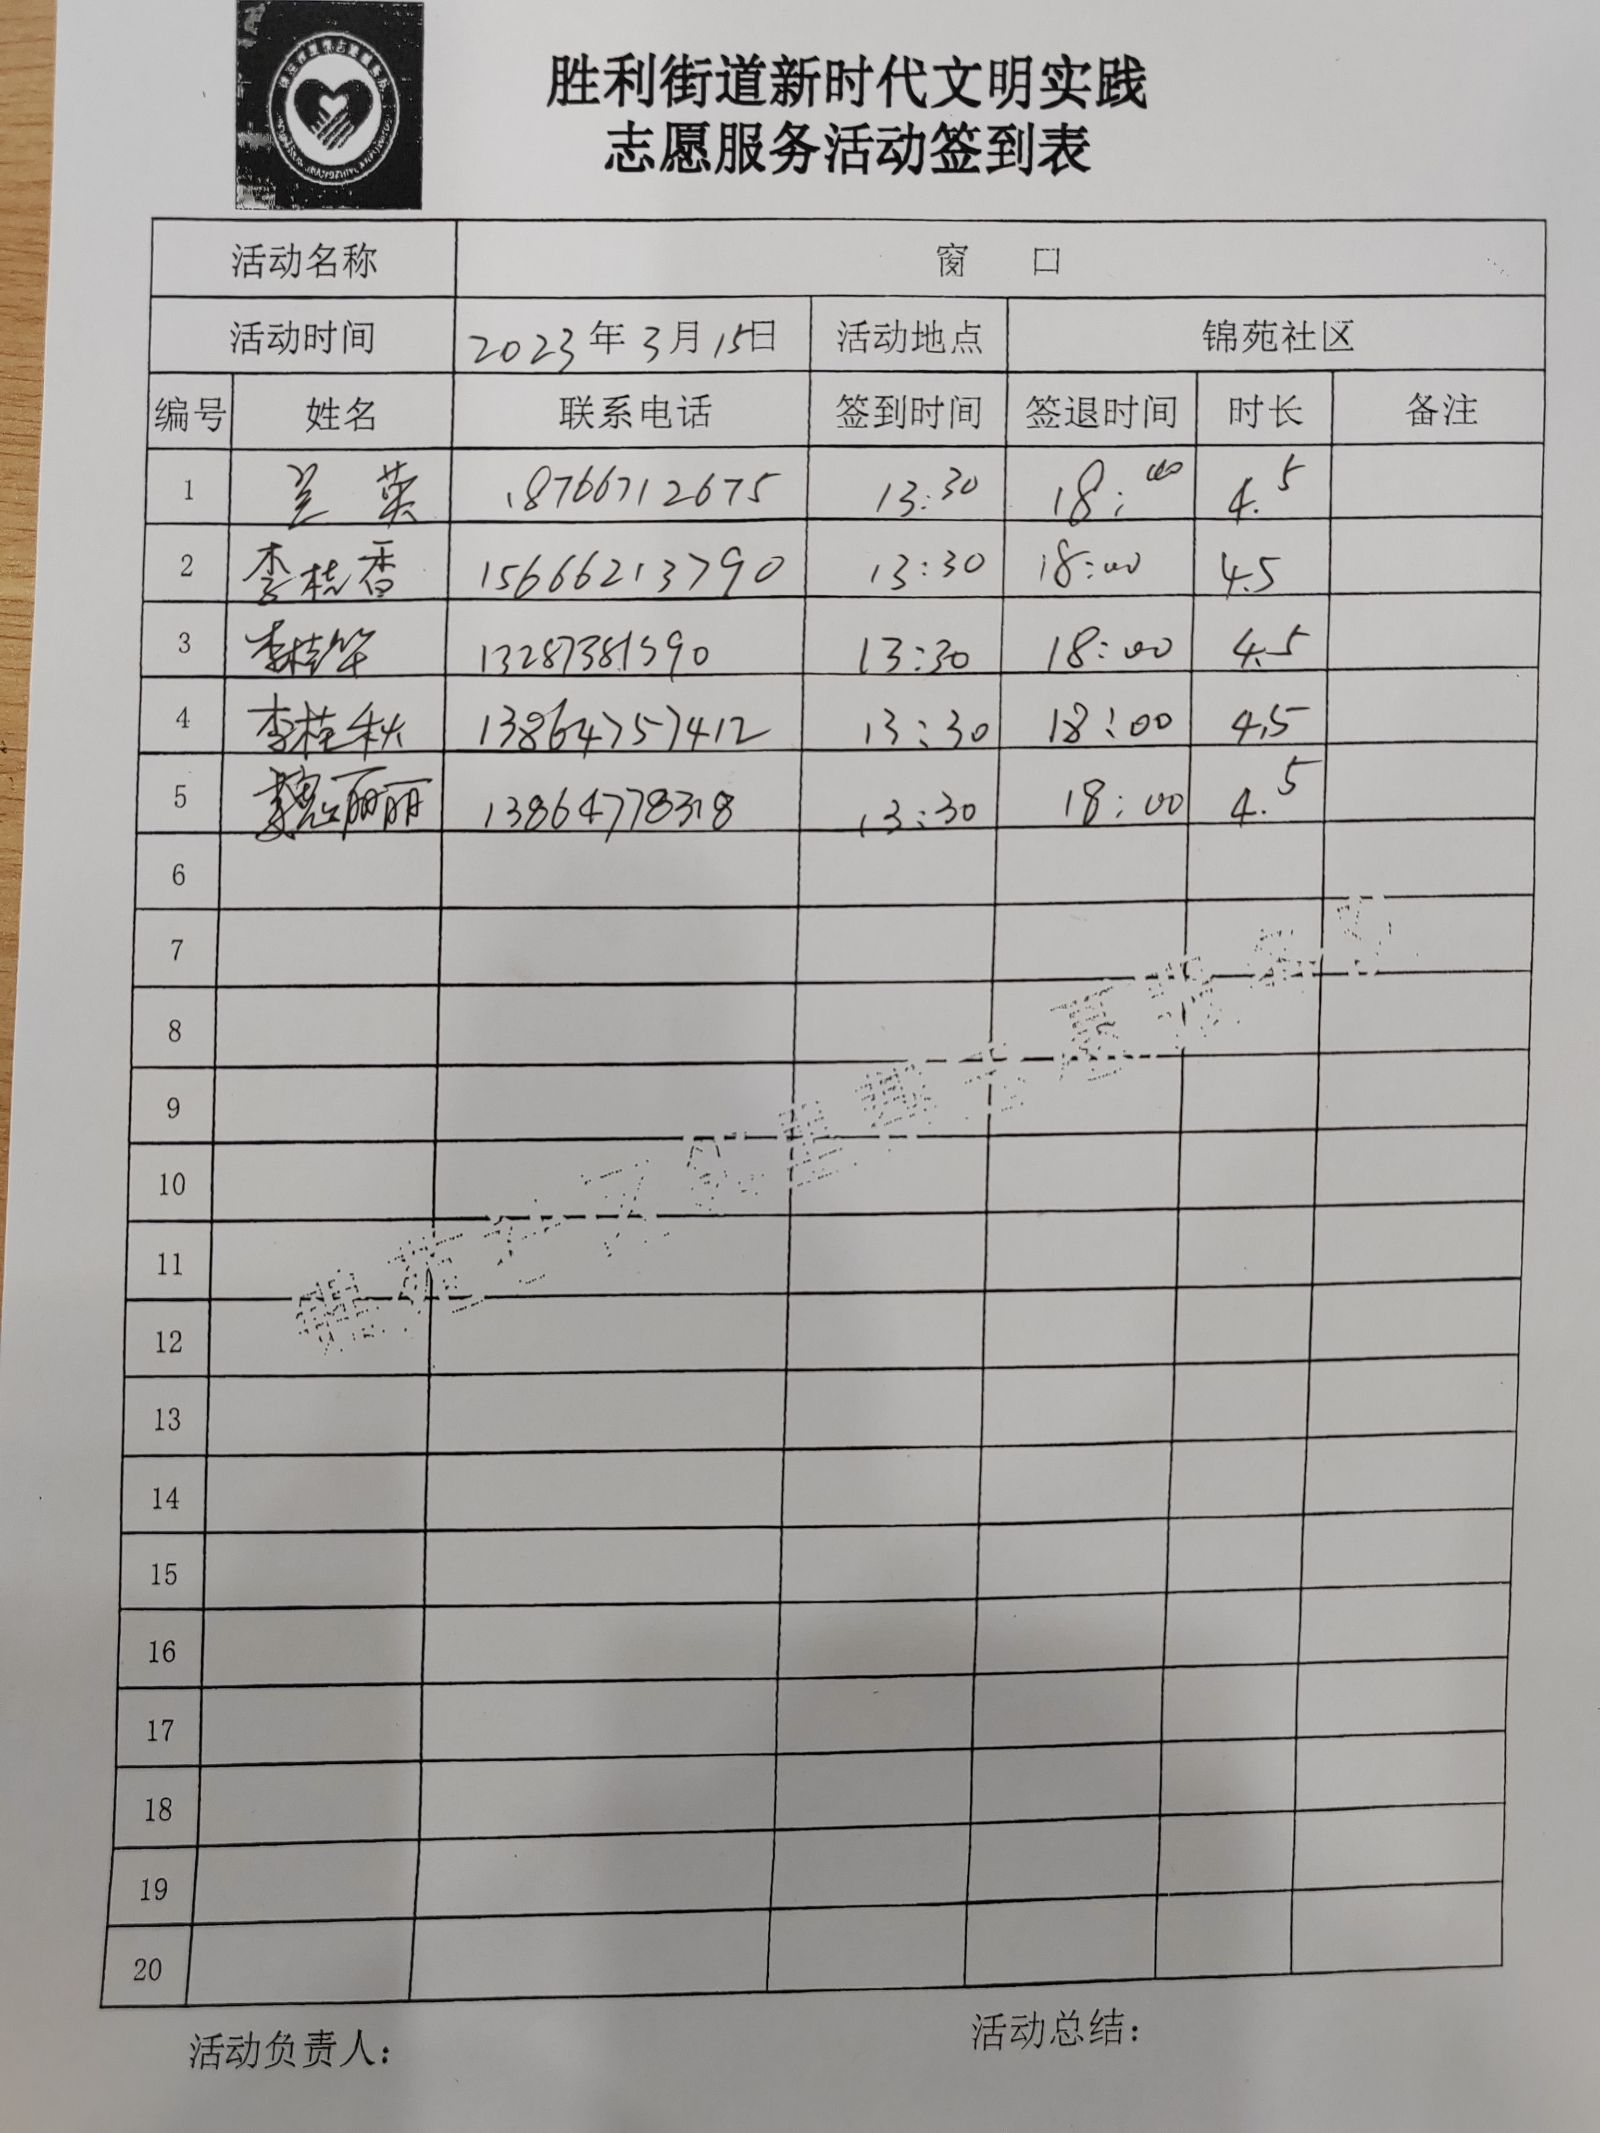 胜利街道新时代文明实践
志愿服务活动签到表
活动名称 窗 口
活动时间 2023年3月15日 活动地点 锦苑社区
编号 姓名 联系电话 签到时间 签退时间 时长 备注
1 兰英 18766712675 13:30 18:00 4.5
2 李桂香 15666213790 13:30 18:00 4.5
3 李桂华 13287381590 13:30 18:00 4.5
4 李桂秋 13864757412 13:30 18:00 4.5
5 魏丽丽 13864778318 13:30 18:00 4.5
6
7
8
9
10
11
12
13
14
15
16
17
18
19
20
活动负责人： 活动总结：